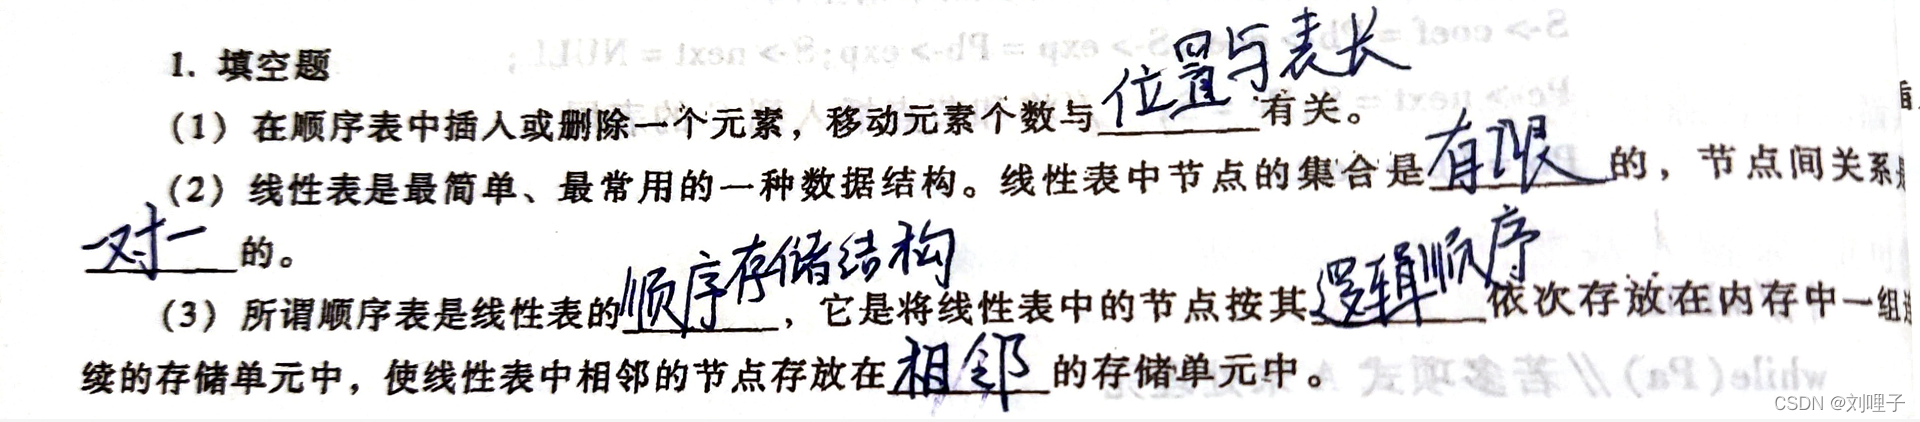 1. 填空题
(1) 在顺序表中插入或删除一个元素，移动元素个数与位置与表长有关。
(2) 线性表是最简单、最常用的一种数据结构。线性表中节点的集合是有限的，节点间关系是
一对一的。
(3) 所谓顺序表是线性表的顺序存储结构，它是将线性表中的节点按其逻辑顺序依次存放在内存中一组连
续的存储单元中，使线性表中相邻的节点存放在相邻的存储单元中。
CSDN @刘哩子